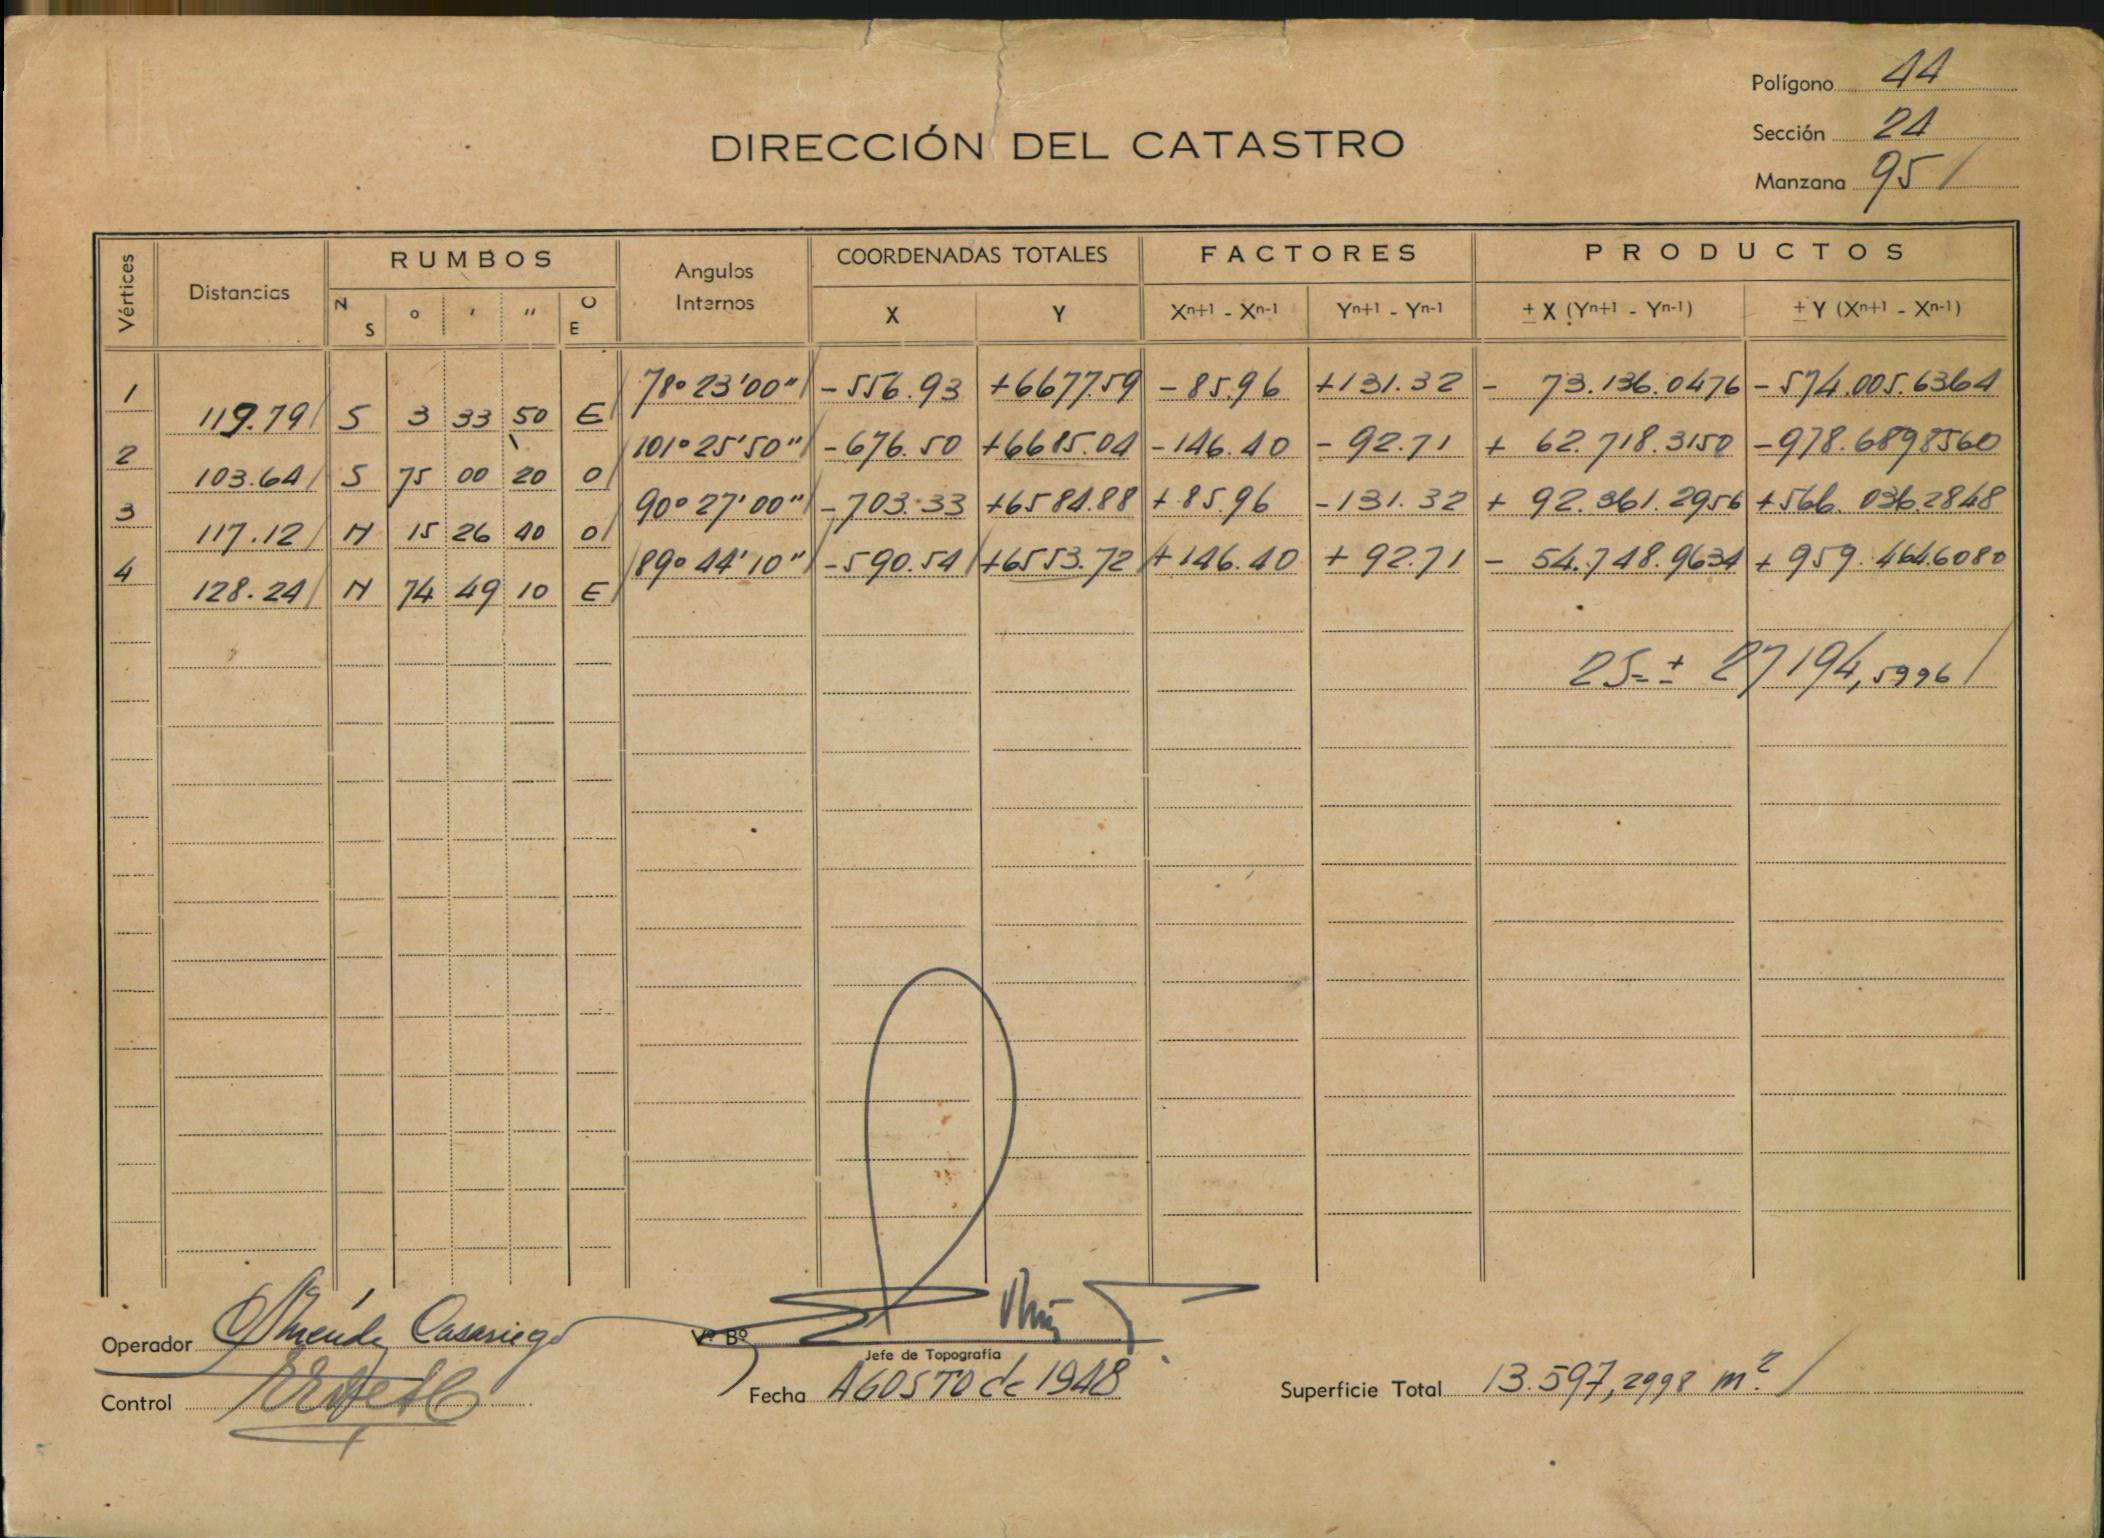 Polígono 44
DIRECCIÓN DEL CATASTRO
Sección 24
Manzana 95
Vértices Distancias RUMBOS Angulos Internos COORDENADAS TOTALES FACTORES PRODUCTOS
N S ° ' " O E X Y Xn+1 - Xn-1 Yn+1 - Yn-1 ± X (Yn+1 - Yn-1) ± Y (Xn+1 - Xn-1)
1 78° 23' 00" -556.93 +6677.59 -85.96 +131.32 - 73.136.0476 -574.005.6364
119.79 S 3 33 50 E
2 101° 25' 50" -676.50 +6685.04 -146.40 -92.71 + 62.718.3150 -978.6898560
103.64 S 75 00 20 O
3 90° 27' 00" -703.33 +6584.88 +85.96 -131.32 + 92.361.2956 +566.036.2848
117.12 N 15 26 40 O
4 89° 44' 10" -590.54 +6553.72 +146.40 +92.71 - 54.748.9634 +959.464.6080
128.24 N 74 49 10 E
2S=± 27194,5996
Operador Casariego
Vº Bº
Jefe de Topografía
Control
Fecha AGOSTO de 1948
Superficie Total 13.597,2998 m²